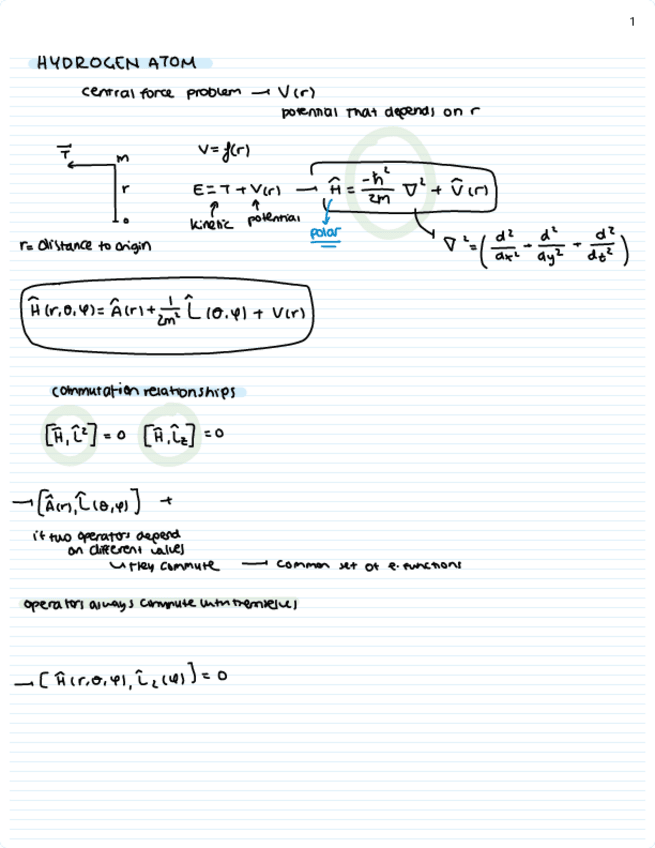 1
HYDROGEN ATOM
central force problem → V(r)
potential that depends on r
T m V = f(r)
r E = T + V(r) → Ĥ = -ħ²/2m ∇² + V̂(r)
kinetic potential
polar
r = distance to origin
∇² = (d²/dx² + d²/dy² + d²/dz²)
Ĥ(r,θ,φ) = Â(r) + 1/2m² L̂(θ,φ) + V(r)
commutation relationships
[Ĥ, L̂²] = 0 [Ĥ, L̂z] = 0
→ [Â(r), L̂(θ,φ)] +
if two operators depend
on different values
↳ they commute → common set of e. functions
operators always commute with themselves
→ [Ĥ(r,θ,φ), L̂z(φ)] = 0